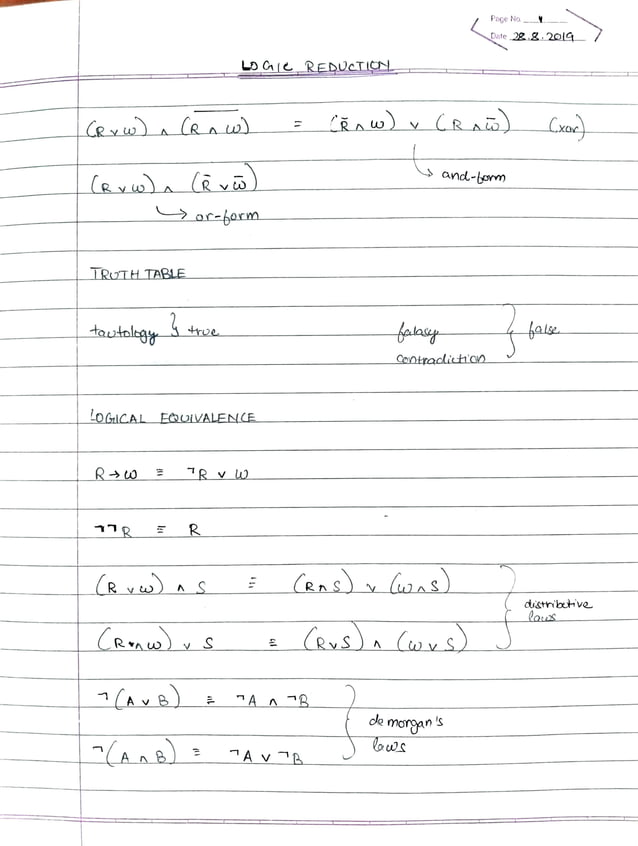 Page No. 4
Date 28.8.2019
LOGIC REDUCTION
(R ∨ W) ∧ (R̅ ̅∧̅ ̅W̅) = (R̅ ∧ W) ∨ (R ∧ W̅) (xor)
↳ and-form
(R ∨ W) ∧ (R̅ ∨ W̅)
↳ or-form
TRUTH TABLE
tautology } true falasy } false
contradiction
LOGICAL EQUIVALENCE
R → W ≡ ¬R ∨ W
¬¬R ≡ R
(R ∨ W) ∧ S ≡ (R ∧ S) ∨ (W ∧ S)
(R ∧ W) ∨ S ≡ (R ∨ S) ∧ (W ∨ S) } distributive laws
¬(A ∨ B) ≡ ¬A ∧ ¬B
¬(A ∧ B) ≡ ¬A ∨ ¬B } de morgan's laws